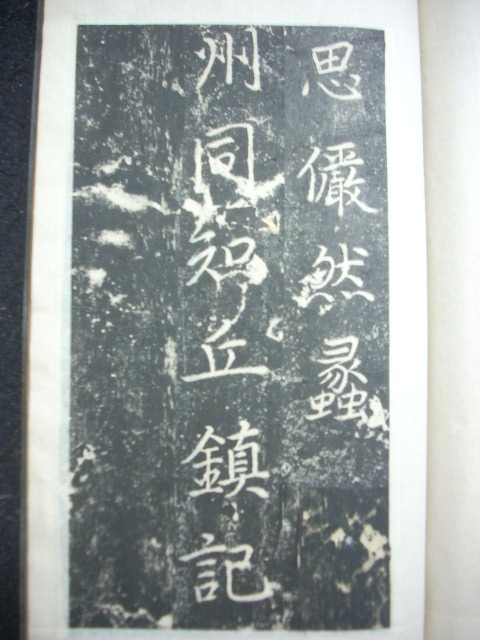 思儼然蠡
州同知丘鎮記